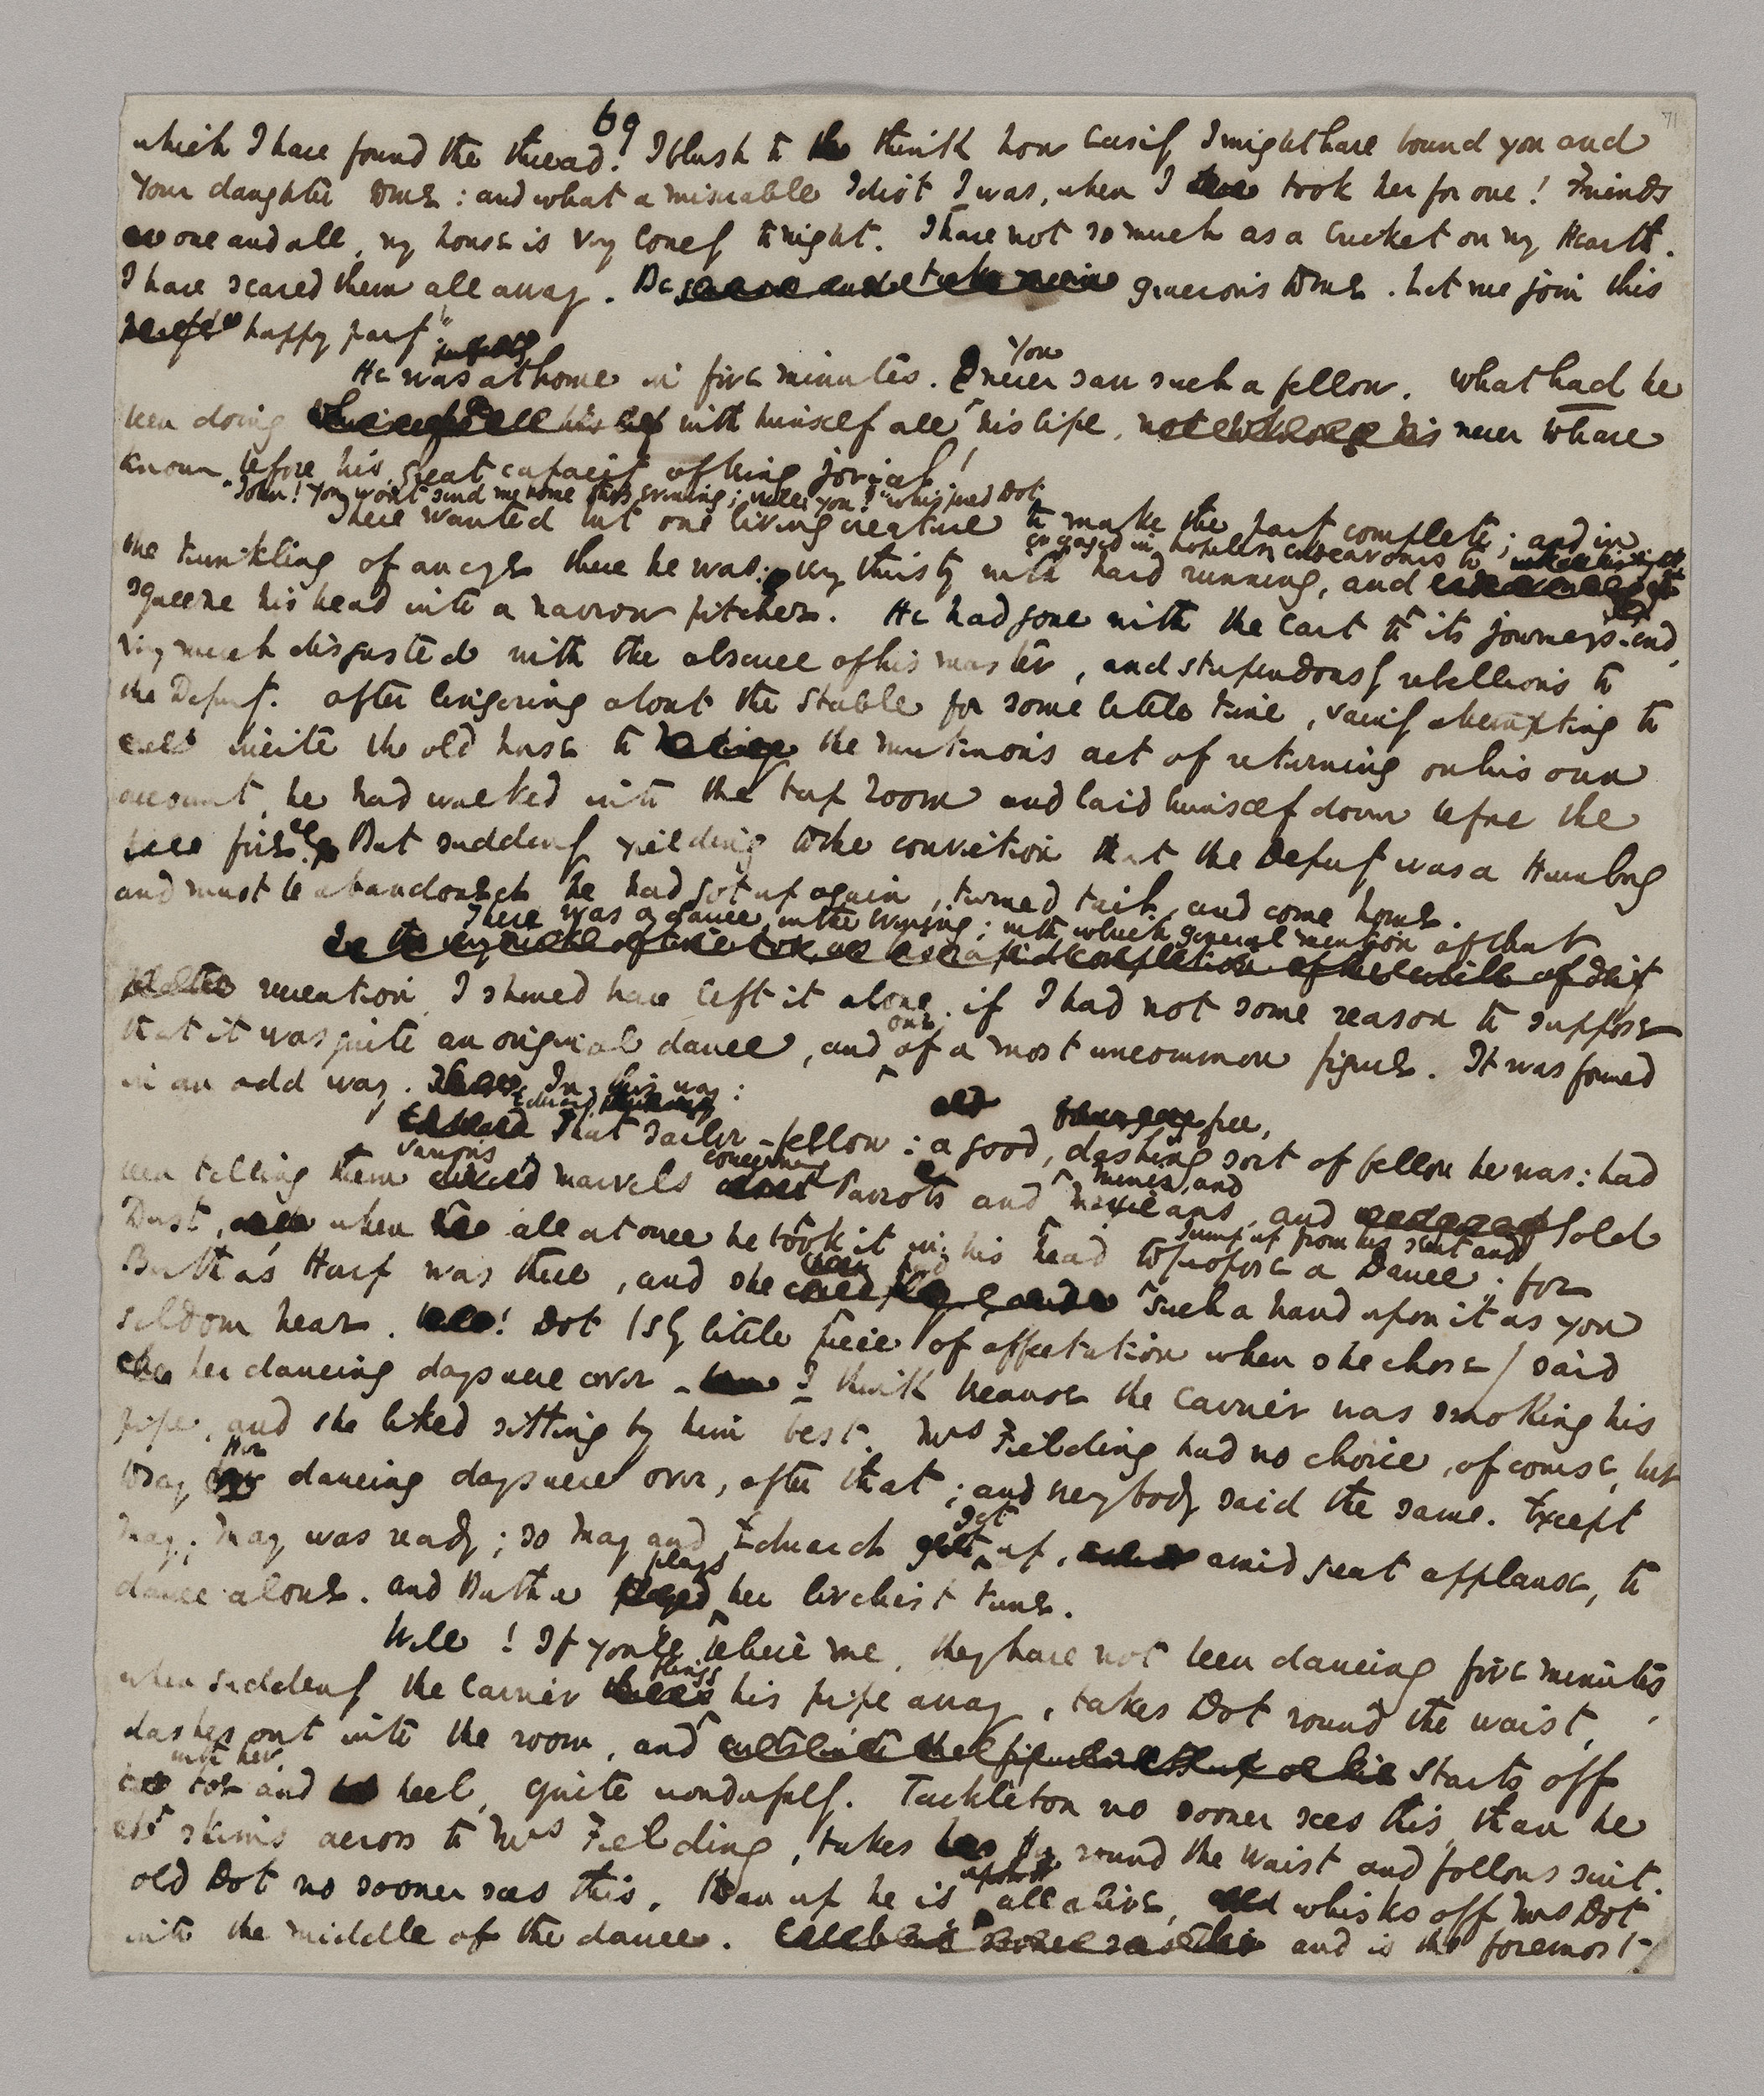 69
71
which I have found the thread! I blush to think how easily I might have bound you and
your daughter to me: and what a miserable Idiot I was, when I took her for one! Friends
one and all, my house is very lonely tonight. I have not so much as a Cricket on my Hearth.
I have scared them all away. Be gracious to me. Let me join this
happy party"!
He was at home in five minutes. You never saw such a fellow. What had he
been doing with himself all his life, never to have
known before his great capacity of being jovial!
"John! You won't send me home this evening; will you?" whispered Dot.
There wanted but one living creature to make the party complete; and in
the twinkling of an eye there he was: very thirsty with hard running, and
engaged in hopeless endeavours to
squeeze his head into a narrow pitcher. He had gone with the Cart to its journeys-end,
very much disgusted with the absence of his master, and stupendously rebellious to
the Deputy. After lingering about the Stable for some little time, vainly attempting to
incite the old horse to the mutinous act of returning on his own
account, he had walked into the tap room and laid himself down before the
fire. But suddenly yielding to the conviction that the Deputy was a Humbug
and must be abandoned he had got up again, turned tail, and come home.
There was a dance, in the evening; with which general mention of that
recreation, I should have left it alone, if I had not some reason to suppose
that it was quite an original dance, and one of a most uncommon figure. It was formed
in an odd way. In this way:
Edward, That sailor-fellow: a good, free, dashing sort of fellow he was: had
been telling them various marvels concerning Parrots and mines, and Mexicans, and Gold
Dust, when all at once he took it in his head to jump up from his seat and propose a Dance; for
Bertha's Harp was there, and she had such a hand upon it as you
seldom hear. Dot (sly little piece of affectation when she chose) said
her dancing days were over – I think because the Carrier was smoking his
pipe, and she liked sitting by him best. Mrs Fielding had no choice, of course, but
to say her dancing days were over, after that; and everybody said the same. Except
May; May was ready; so May and Edward get up, amid great applause, to
dance alone. And Bertha plays her liveliest tune.
Well! If you'll believe me, they have not been dancing five minutes,
when suddenly the Carrier flings his pipe away, takes Dot round the waist,
dashes out into the room, and starts off
with her,
toe and heel, quite wonderfully. Tackleton no sooner sees this, than he
skims across to Mrs Fielding, takes her round the waist and follows suit.
old Dot no sooner sees this, than up he is, all alive, whisks off Mrs Dot
into the middle of the dance. and is the foremost